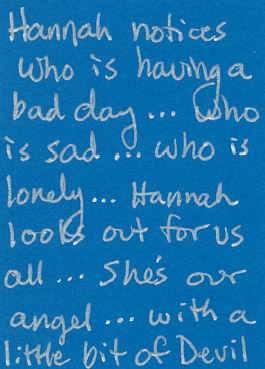 Hannah notices
who is having a
bad day... Who
is sad... who is
lonely... Hannah
looks out for us
all... She's our
angel... with a
little bit of Devil